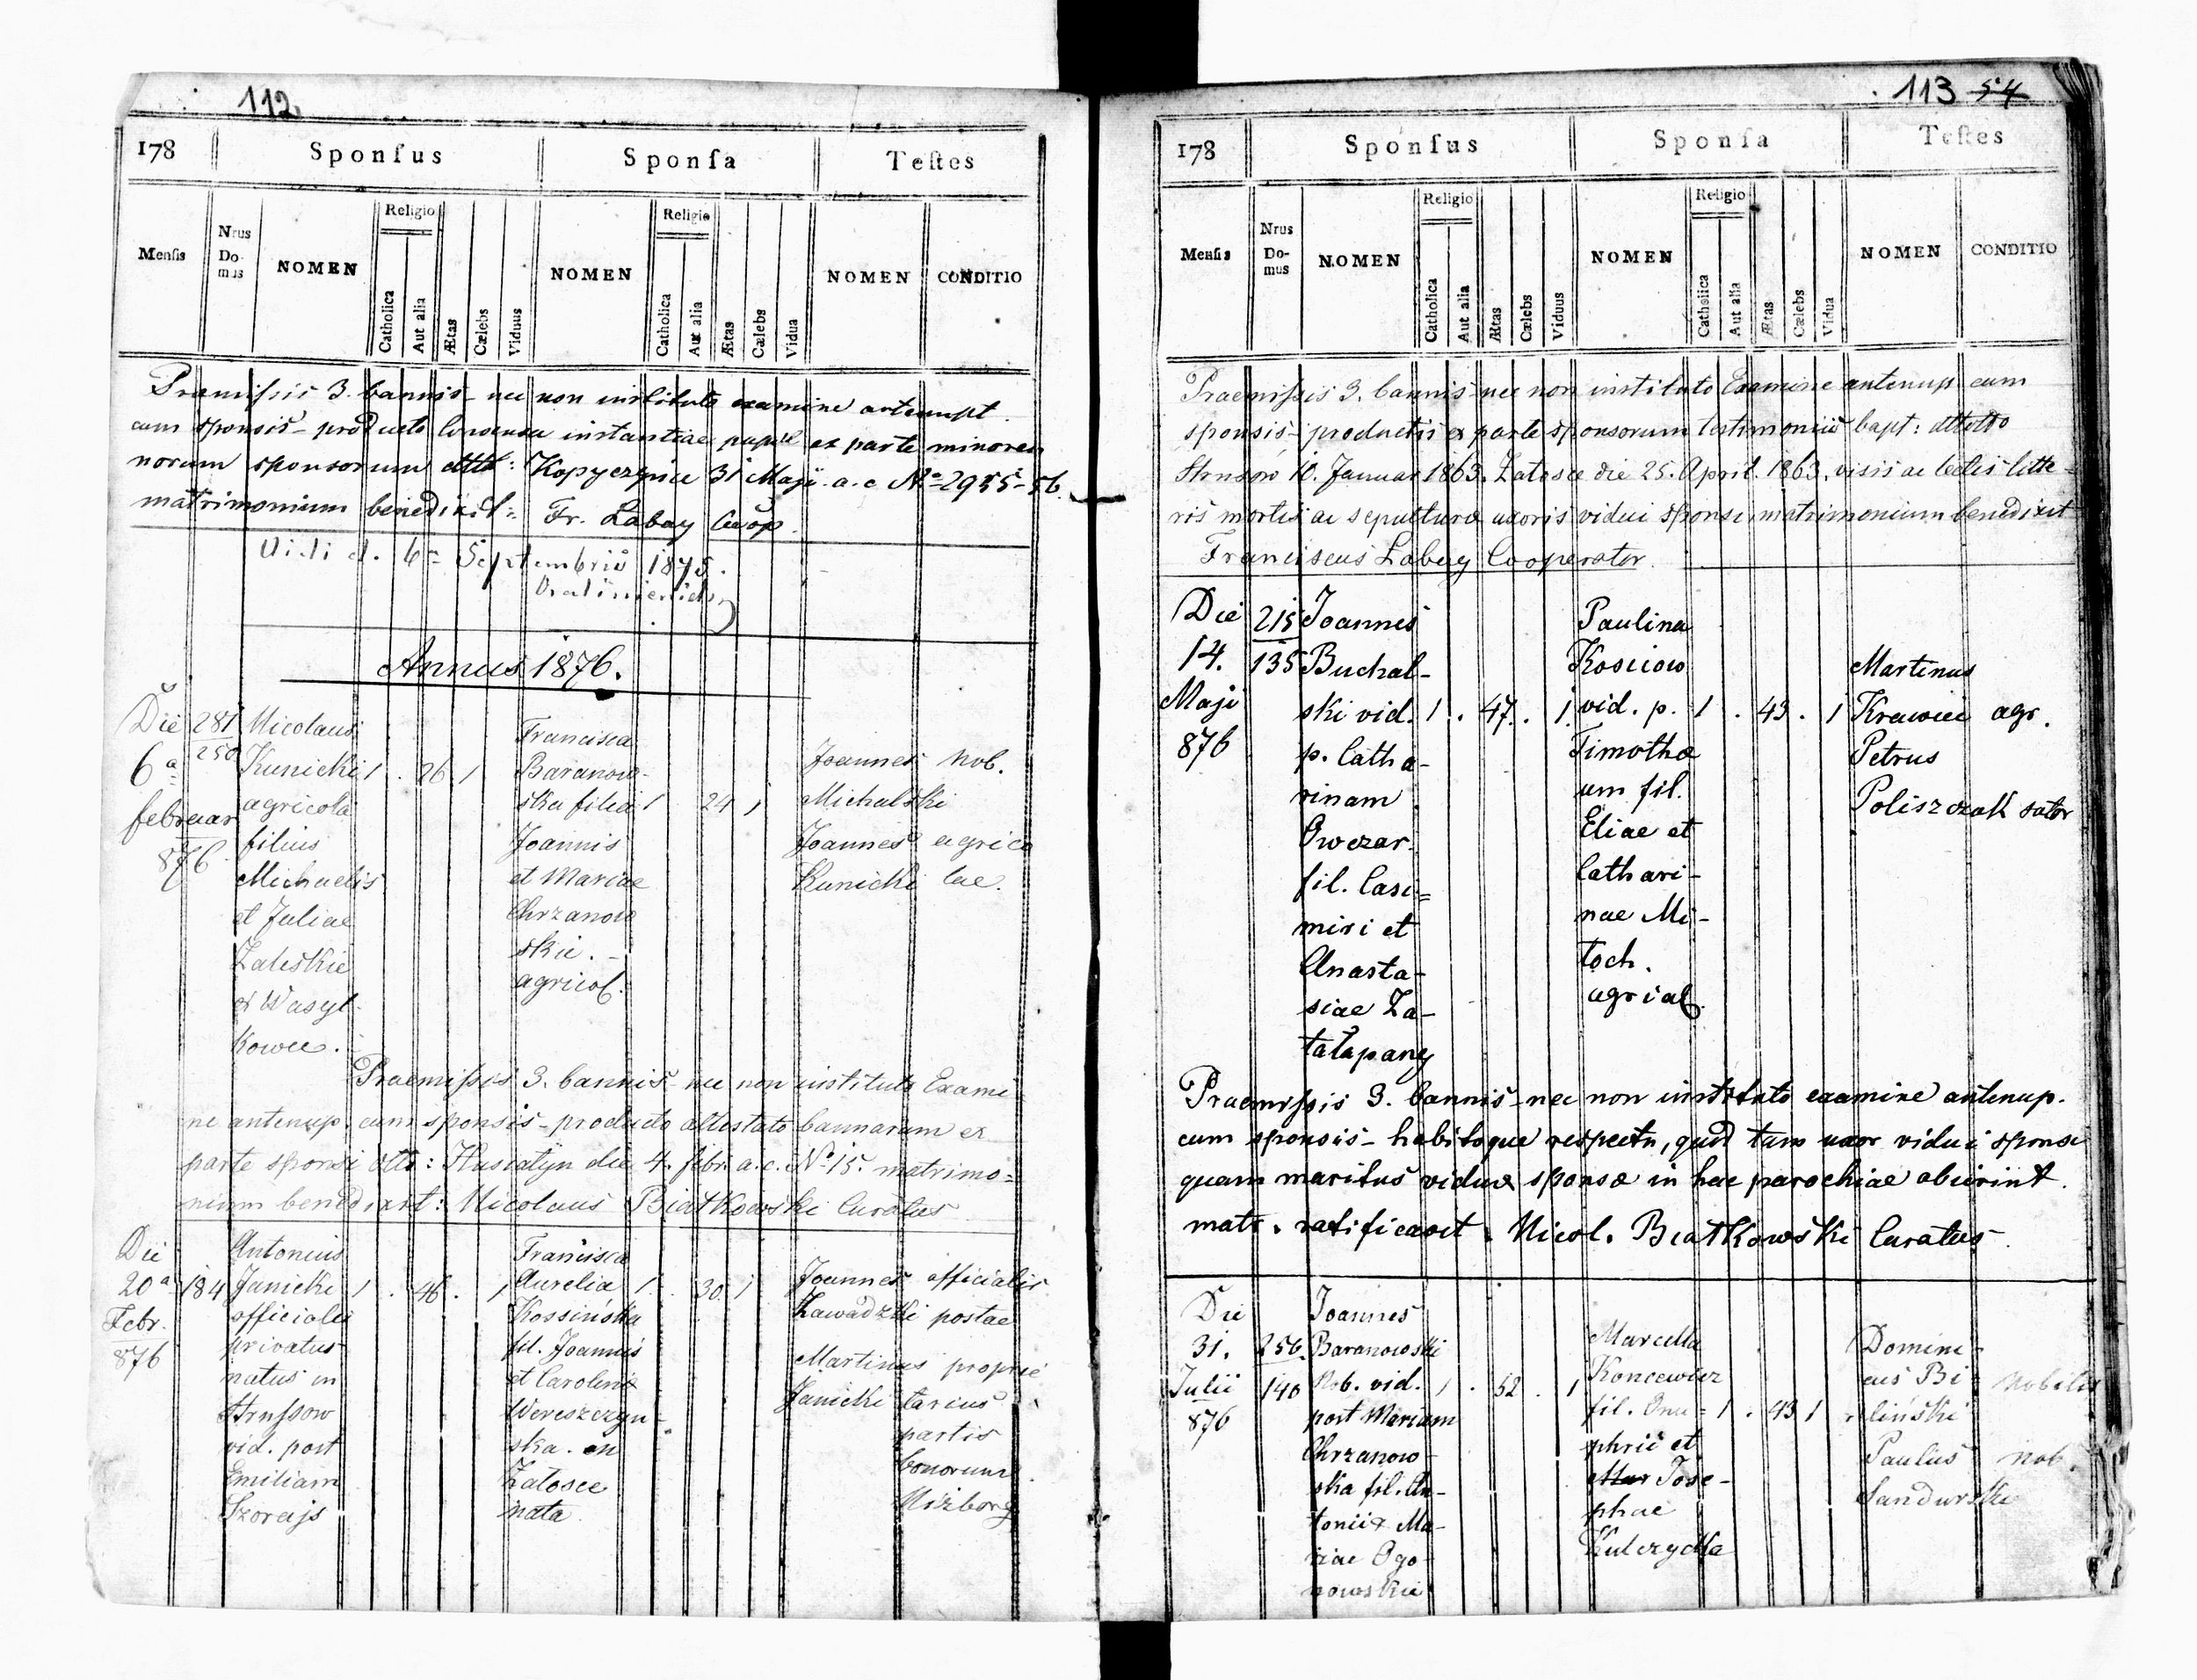 112.
178 Sponsus Sponsa Testes
Mensis Nrus Domus NOMEN Religio Catholica Aut alia Ætas Cælebs Viduus NOMEN Religio Catholica Aut alia Ætas Cælebs Vidua NOMEN CONDITIO
Praemissis 3. bannis nec non instituto examine antenupt.
cum sponsis – producto consensu instantiae pupill ex parte minoren
norum sponsorum : Kopyczynce 31 Maji a. c. No 2955–56.
matrimonium benedixit: Fr. Labay Coop.
Vidi d. 6a Septembris 1875.
Annus 1876.
Die 281 Nicolaus Francisca
6a 250 Kunicki 1 . 26 1 Baranow- Joannes Nob.
februar agricola ska filia 1 24 1 Michalski
876 filius Joannis Joannes agrico
Michaelis et Mariae Kunicki lae.
et Juliae Chrzanow
Zaleskie skie. –
ex Wasyl- agricol.
kowce.
Praemissis 3. bannis nec non instituto Exami
ne antenup. cum sponsis – producto attestato bannorum ex
parte sponsi dtto: Husiatyn die 4. febr. a. c. No 15. matrimo=
nium benedixit: Nicolaus Białkowski Curatus
Die Antonius Francisca
20a 184 Janicki 1 . 46 . 1 Aurelia 1 . 30 1 Joannes officialis
Febr. officialis Kossińska Zawadzki postae
876 privatus fil. Joannis Martinus proprie
natus in et Carolinæ Janicki tarius
Strussow Wereszczyn- partis
vid. post ska. in bonorum
Emiliam Załosce Niżborg
Szorejs nata
113 54
178 Sponsus Sponsa Testes
Mensis Nrus Domus NOMEN Religio Catholica Aut alia Ætas Cælebs Viduus NOMEN Religio Catholica Aut alia Ætas Cælebs Vidua NOMEN CONDITIO
Praemissis 3. bannis nec non instituto Examine antenup. cum
sponsis – productis ex parte sponsorum testimoniis bapt:
Strusow 10. Januar 1863. Załosce die 25. April. 1863. visis ac lectis litte=
ris mortis ac sepulturæ uxoris vidui sponsi, matrimonium benedixit
Franciscus Labay Cooperator.
Die 215 Joannes Paulina
14. 135 Buchal- Kosciow Martinus
Maji ski vid. 1 . 47 . 1. vid. p. 1 . 43 . 1 Krawiec agr.
876 p. Catha- Timothe Petrus
rinam um fil. Poliszczak sator
Owczar. Eliae et
fil. Casi= Cathari-
miri et nae Mi-
Anasta- toch.
siae Za- agricol.
tałapany
Praemissis 3. bannis – nec non instituto examine antenup.
cum sponsis – habitoque respectu, quod tam uxor vidui sponsi
quam maritus viduæ sponsæ in hac parochiae obierint.
matr. ratificavit. Nicol. Białkowski Curatus.
Die Joannes
31. 256. Baranowski Marcella Domini-
Julii 140 Nob. vid. 1 . 52 . 1 Koncewicz cus Bi- nobilis
876 post Mariam fil. Onu= 1 . 43 1 liński
Chrzanow- phrii et Paulus nob.
ska fil. An- Mar Jose- Sandurski
tonii & Ma- phae
riae Ogo- Kulczycka
nowskie